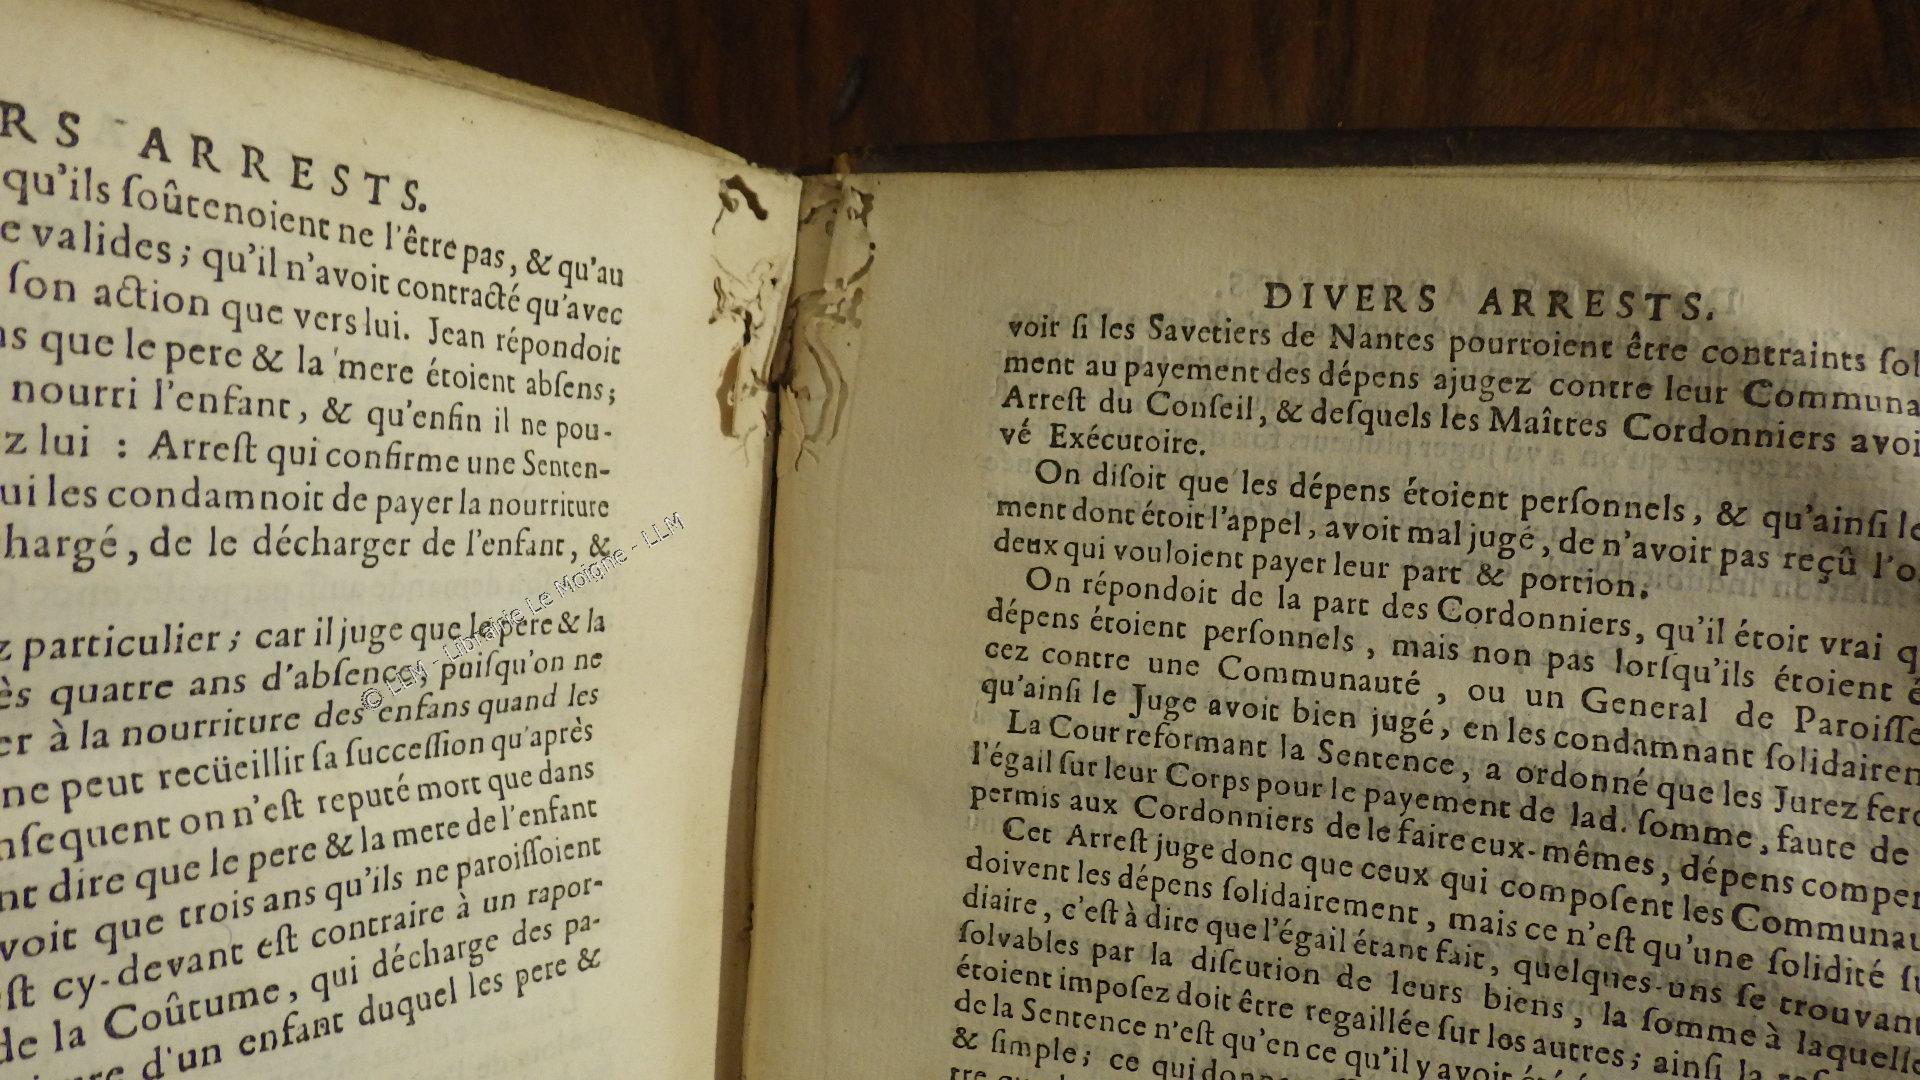 RS ARRESTS.
qu'ils ſoûtenoient ne l'être pas, & qu'au
e valides; qu'il n'avoit contracté qu'avec
ſon action que vers lui. Jean répondoit
ns que le pere & la mere étoient abſens;
nourri l'enfant, & qu'enfin il ne pou-
z lui : Arreſt qui confirme une Senten-
ui les condamnoit de payer la nourriture
hargé, de le décharger de l'enfant, &
z particulier; car il juge que le pere & la
ès quatre ans d'abſence, puiſqu'on ne
er à la nourriture des enfans quand les
ne peut recüeillir ſa ſucceſſion qu'après
nſequent on n'eſt reputé mort que dans
nt dire que le pere & la mere de l'enfant
voit que trois ans qu'ils ne paroiſſoient
eſt cy-devant eſt contraire à un rapor-
de la Coûtume, qui décharge des pa-
d'un enfant duquel les pere &
© LLM - Librairie Le Moigne - LLM
DIVERS ARRESTS.
voir ſi les Savetiers de Nantes pourroient être contraints ſol
ment au payement des dépens ajugez contre leur Communa
Arreſt du Conſeil, & deſquels les Maîtres Cordonniers avoi
vé Exécutoire.
On diſoit que les dépens étoient perſonnels, & qu'ainſi le
ment dont étoit l'appel, avoit mal jugé, de n'avoir pas reçû l'o
deux qui vouloient payer leur part & portion.
On répondoit de la part des Cordonniers, qu'il étoit vrai q
dépens étoient perſonnels, mais non pas lorſqu'ils étoient é
cez contre une Communauté, ou un General de Paroiſſe
qu'ainſi le Juge avoit bien jugé, en les condamnant ſolidairem
La Cour reformant la Sentence, a ordonné que les Jurez fero
l'égail ſur leur Corps pour le payement de lad. ſomme, faute de
permis aux Cordonniers de le faire eux-mêmes, dépens compen
Cet Arreſt juge donc que ceux qui compoſent les Communau
doivent les dépens ſolidairement, mais ce n'eſt qu'une ſolidité ſu
diaire, c'eſt à dire que l'égail étant fait, quelques-uns ſe trouvant
ſolvables par la diſcution de leurs biens, la ſomme à laquelle
étoient impoſez doit être regaillée ſur les autres; ainſi la
de la Sentence n'eſt qu'en ce qu'il y avoit
& ſimple; ce qui